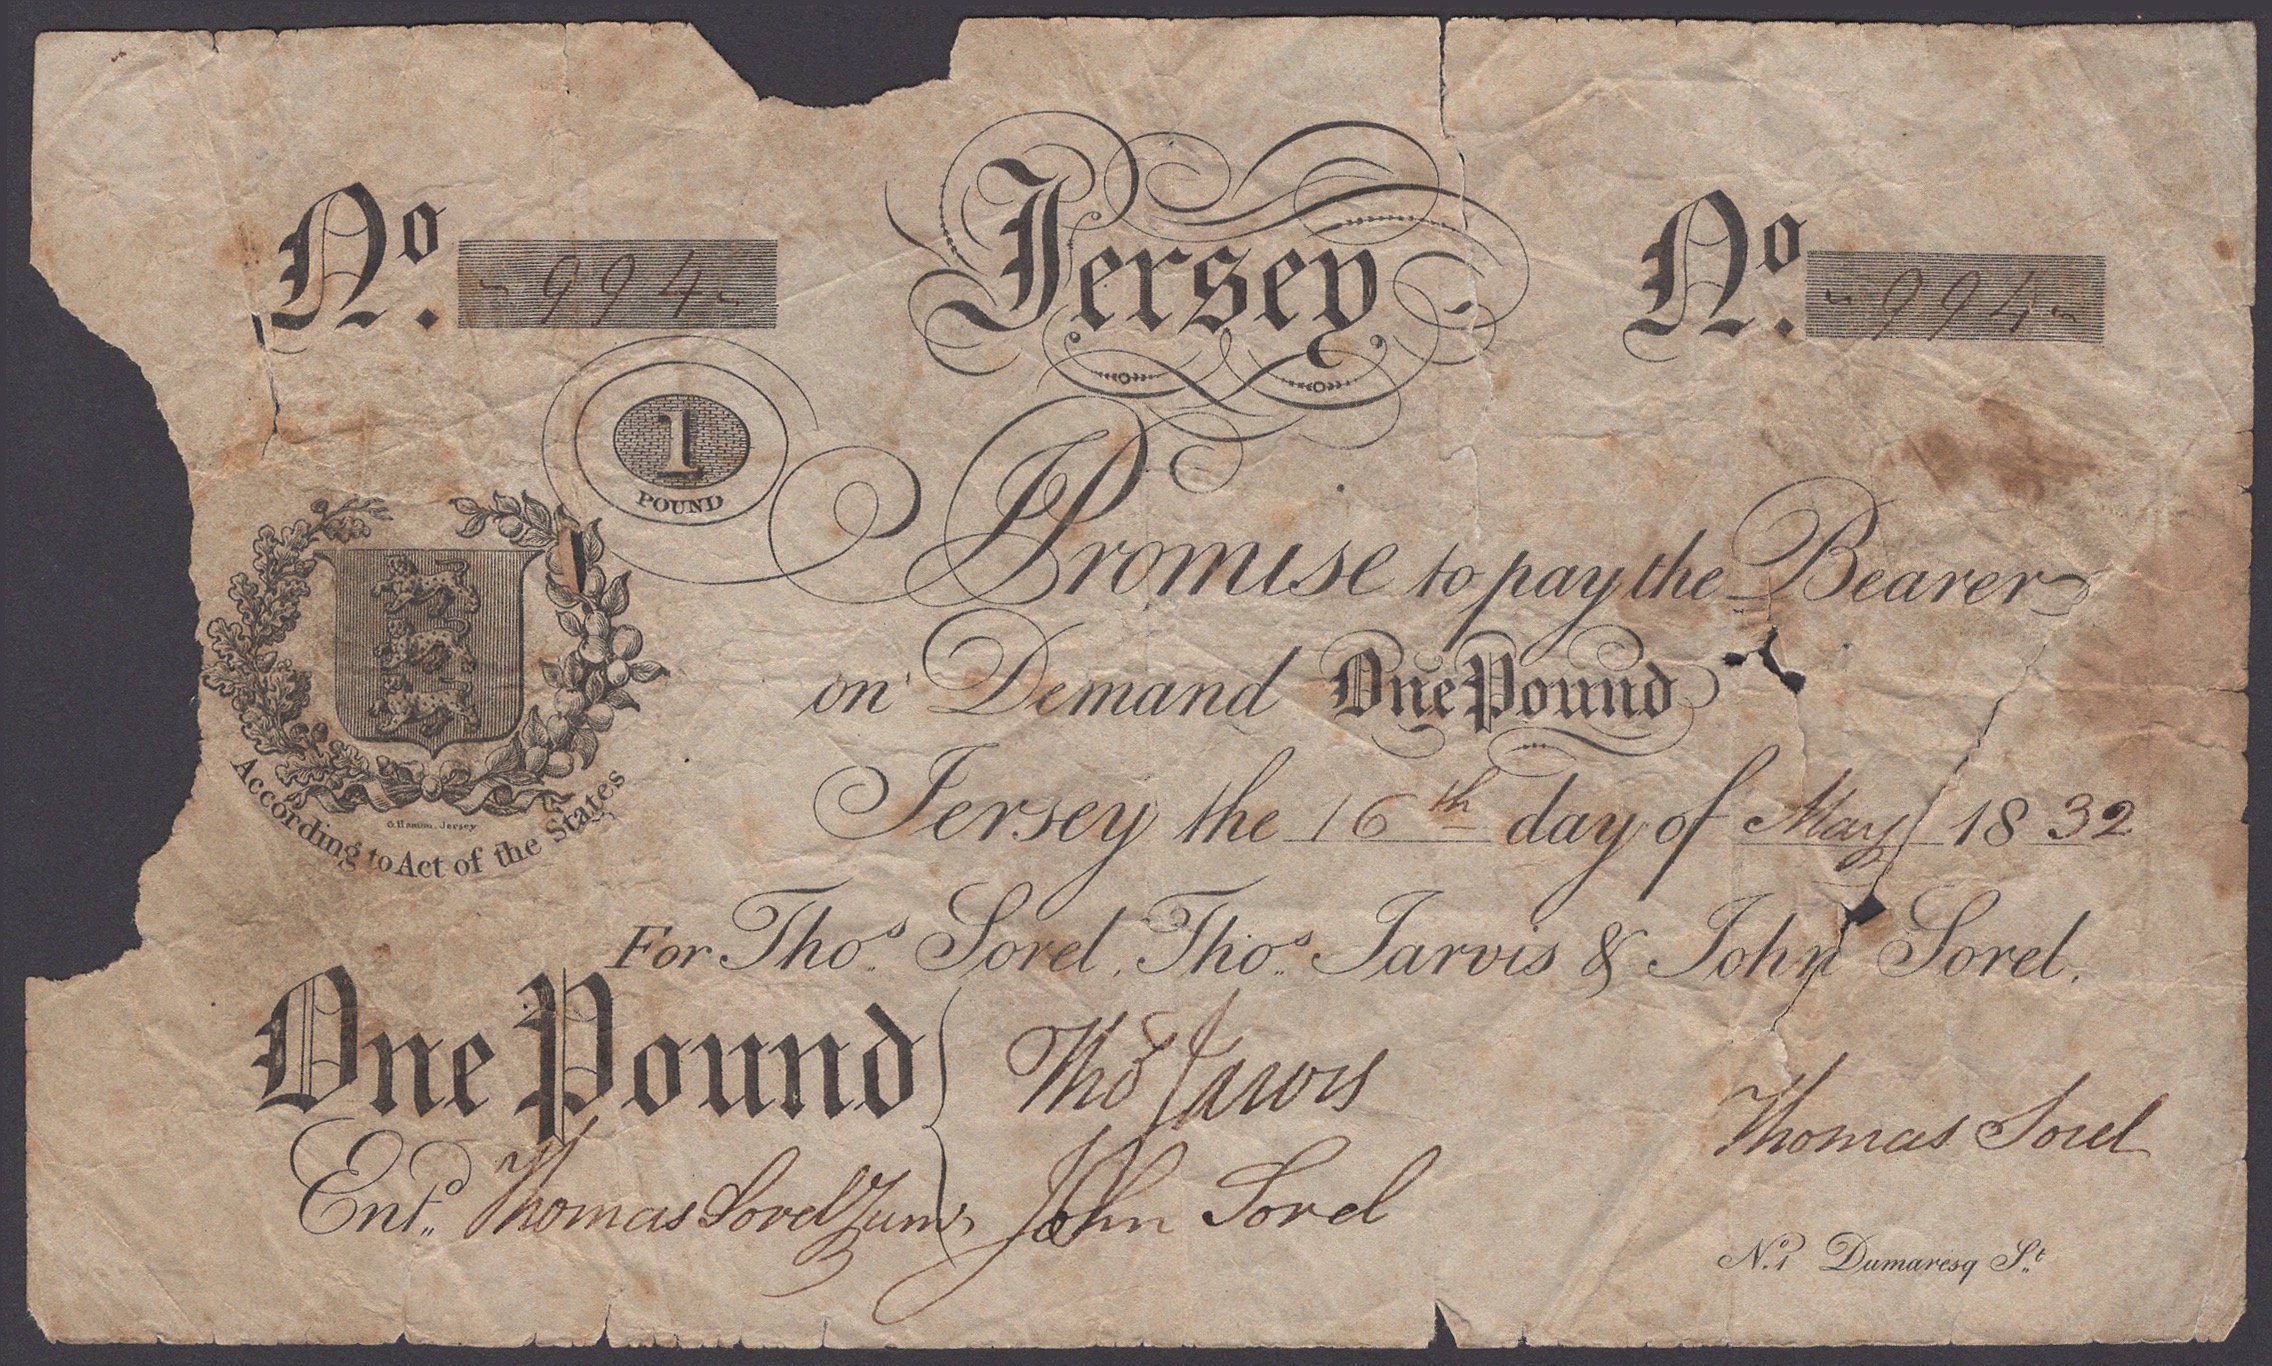 No. 994
Jersey
No. 994
1
POUND
I Promise to pay the Bearer
on Demand One Pound
Jersey the 16th day of May 1832
According to Act of the States
G. Hamon, Jersey
For Thos. Sorel, Thos. Jarvis & John Sorel.
One Pound
Thos Jarvis
Thomas Sorel
Entd. Thomas Sorel Junr
John Sorel
No. 1 Dumaresq St.